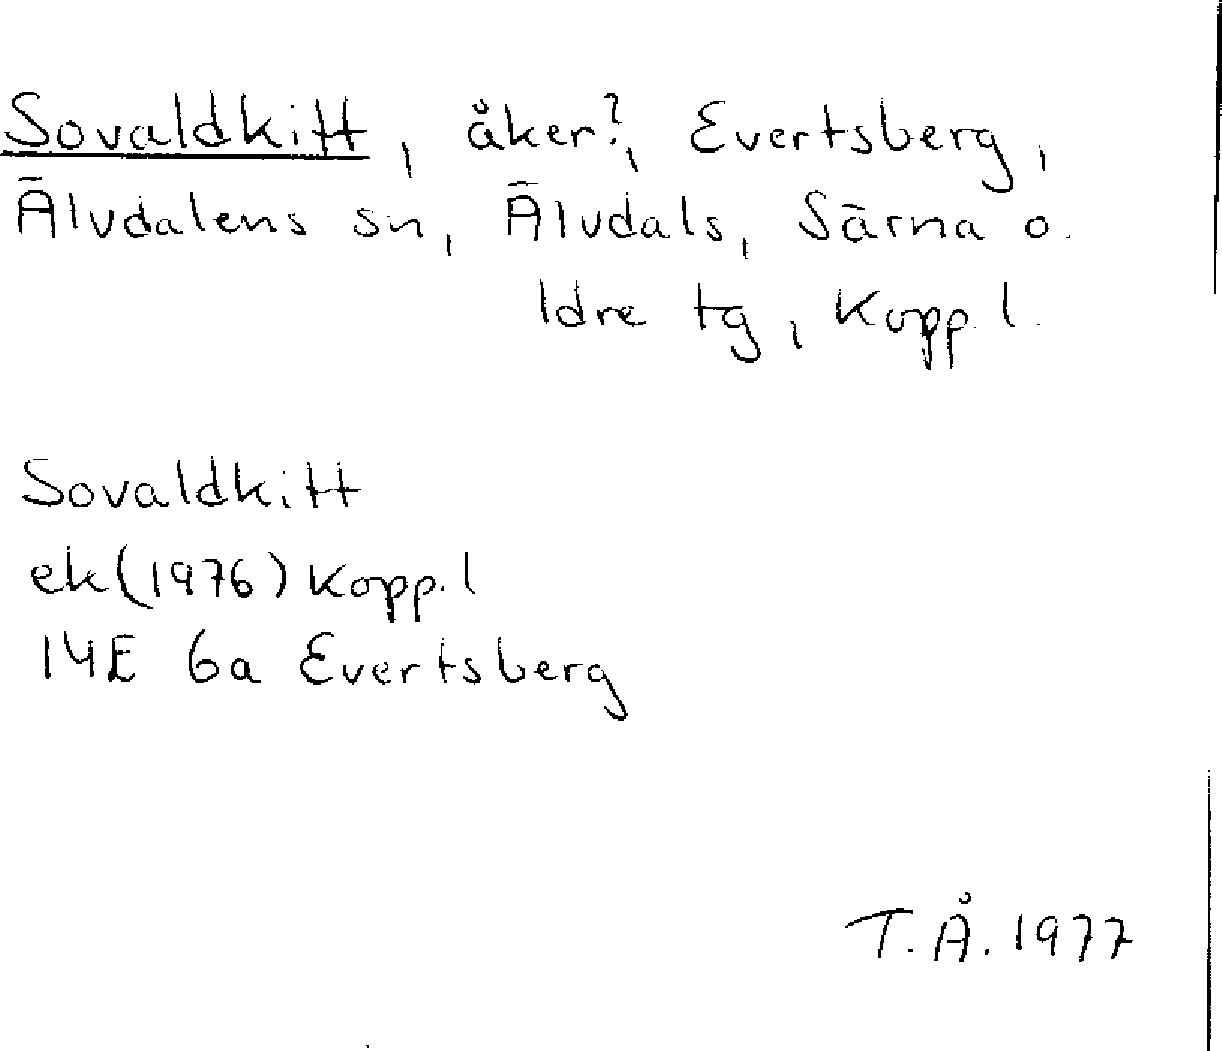 Sovaldkitt, åker?, Evertsberg,
Älvdalens sn, Älvdals, Särna o.
Idre tg, Kopp. l.
Sovaldkitt
ek (1976) Kopp. l
14E 6a Evertsberg
T.Å. 1977